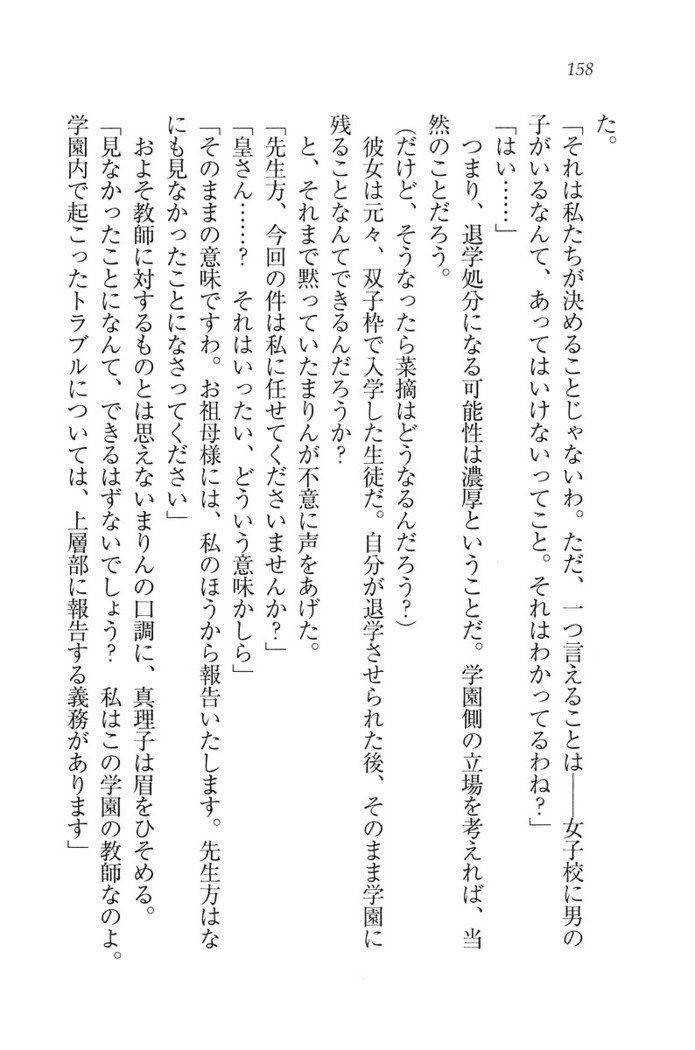 158
た。
「それは私たちが決めることじゃないわ。ただ、一つ言えることは――女子校に男の
子がいるなんて、あってはいけないってこと。それはわかってるわね？」
「はい……」
つまり、退学処分になる可能性は濃厚ということだ。学園側の立場を考えれば、当
然のことだろう。
(だけど、そうなったら菜摘はどうなるんだろう？)
彼女は元々、双子枠で入学した生徒だ。自分が退学させられた後、そのまま学園に
残ることなんてできるんだろうか？
と、それまで黙っていたまりんが不意に声をあげた。
「先生方、今回の件は私に任せてくださいませんか？」
「皇さん……？　それはいったい、どういう意味かしら」
「そのままの意味ですわ。お祖母様には、私のほうから報告いたします。先生方はな
にも見なかったことになさってください」
およそ教師に対するものとは思えないまりんの口調に、真理子は眉をひそめる。
「見なかったことになんて、できるはずないでしょう？　私はこの学園の教師なのよ。
学園内で起こったトラブルについては、上層部に報告する義務があります」